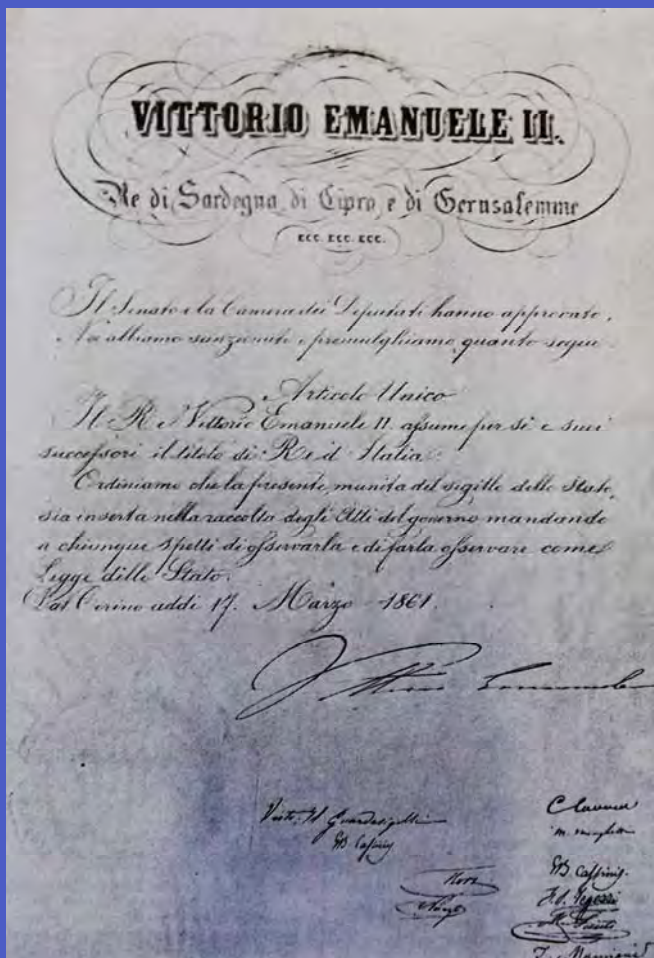 VITTORIO EMANUELE II.
Re di Sardegna, di Cipro, e di Gerusalemme
ECC. ECC. ECC.
Il Senato e la Camera dei Deputati hanno approvato,
Noi abbiamo sanzionato e promulghiamo quanto segue
Articolo Unico
Il Re Vittorio Emanuele II assume per sè e suoi
successori il titolo di Re d'Italia.
Ordiniamo che la presente, munita del sigillo dello Stato,
sia inserta nella raccolta degli Atti del governo mandando
a chiunque spetti di osservarla e di farla osservare come
Legge dello Stato.
Dat Torino addì 17. Marzo 1861.
Vittorio Emanuele
Visto: Il Guardasigilli
GB Cassinis
C Cavour
M. Minghetti
GB Cassinis